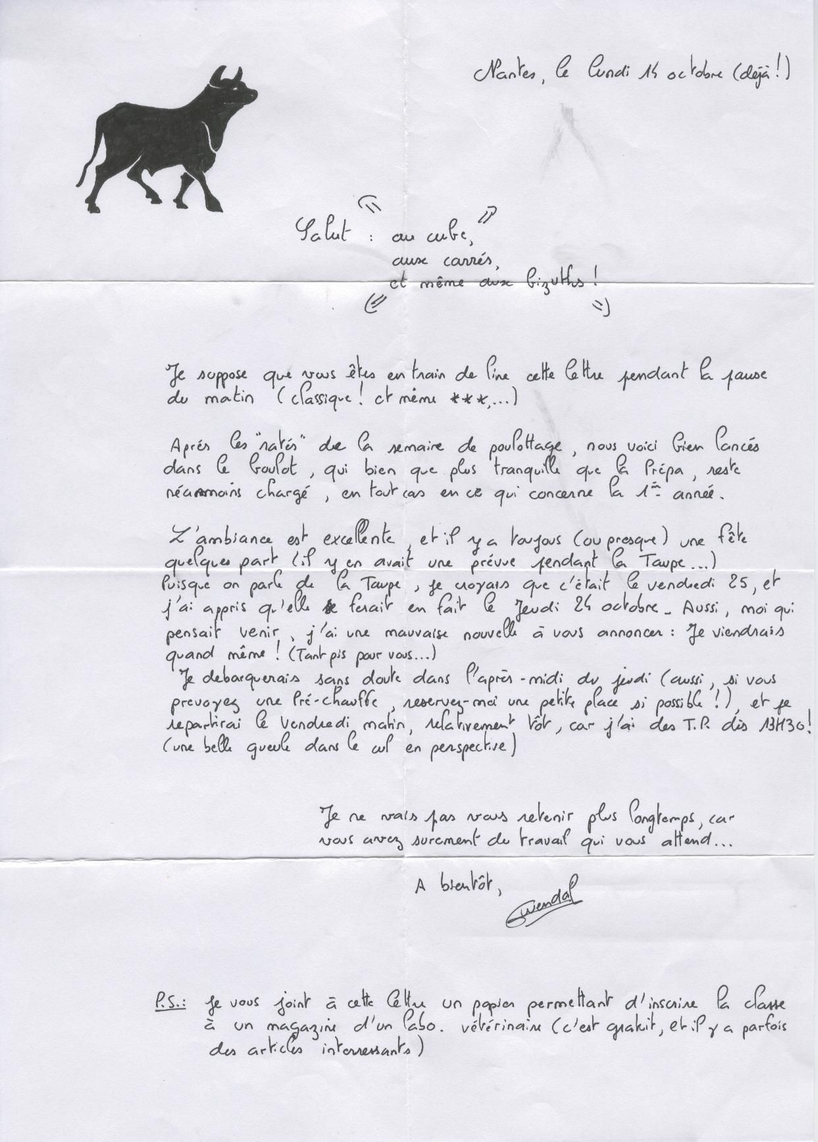 Nantes, le lundi 14 octobre (déjà!)
Salut : au cube,
aux carrés,
et même aux bizuths !
Je suppose que vous êtes en train de lire cette lettre pendant la pause
du matin (classique! et même ***,...)
Aprés les "ratés" de la semaine de poulottage, nous voici bien lancés
dans le boulot, qui bien que plus tranquille que la Prépa, reste
néanmoins chargé, en tout cas en ce qui concerne la 1ère année.
L'ambiance est excellente, et il y a toujous (ou presque) une fête
quelques part (il y en avait une prévue pendant la Taupe...)
Puisque on parle de la Taupe, je croyais que c'était le vendredi 25, et
j'ai appris qu'elle se ferait en fait le Jeudi 24 octobre. Aussi, moi qui
pensait venir, j'ai une mauvaise nouvelle à vous annoncer : Je viendrais
quand même ! (Tant pis pour vous...)
Je debarquerais sans doute dans l'après-midi du jeudi (aussi, si vous
prevoyez une Pré-chauffe, reservez-moi une petite place si possible !), et je
repartirai le Vendredi matin, relativement tôt, car j'ai des T.P. dès 13H30!
(une belle gueule dans le cul en perspective)
Je ne vais pas vous retenir plus longtemps, car
vous avez surement du travail qui vous attend...
A bientôt,
Gwendal
P.S.: Je vous joint à cette lettre un papier permettant d'inscrire la classe
à un magazine d'un labo. vétérinaire (c'est gratuit, et il y a parfois
des articles interressants)